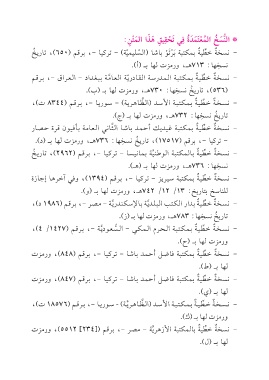 * النُّسَخُ المُعْتَمَدَةُ فِي تَحْقِيقِ هَذَا المَتْنِ:
- نسخةٌ خطِّيةٌ بمكتبة بَرْتَوْ باشا (السُّليميَّة) - تركيا -، برقم (٦٥٠)، تاريخُ
نسخِها: ٧١٣هـ، ورمزت لها بـ (أ).
- نسخةٌ خطِّيةٌ بمكتبة المدرسة القادريَّة العامَّة ببغداد - العراق -، برقم
(٥٣٦)، تاريخُ نسخِها: ٧٣٠هـ، ورمزت لها بـ (ب).
- نسخةٌ خطِّيةٌ بمكتبة الأسد (الظَّاهريَّة) - سوريا -، برقم (٨٣٤٤ ت)،
تاريخُ نسخِها: ٧٣٢هـ، ورمزت لها بـ (ج).
- نسخةٌ خطِّيةٌ بمكتبة غيديك أحمد باشا الثَّاني العامة بأفيون قرة حصار
- تركيا -، برقم (١٧٥١٧)، تاريخُ نسخِها: ٧٣٦هـ، ورمزت لها بـ (د).
- نسخةٌ خطِّيةٌ بالمكتبة الوطنيَّة بمانيسا - تركيا -، برقم (٢٩٦٢)، تاريخُ
نسخِها: ٧٣٦هـ، ورمزت لها بـ (هـ).
- نسخةٌ خطِّيةٌ بمكتبة سيريز - تركيا -، برقم (١٣٩٤)، وفي آخرها إجازة
للناسخ بتاريخ: ١٣/ ١٢/ ٧٤٢هـ، ورمزت لها بـ (و).
- نسخةٌ خطِّيةٌ بدار الكتب البلديَّة بالإسكندريَّة - مصر -، برقم (١٩٨٦ د)،
تاريخُ نسخِها: ٧٨٣هـ، ورمزت لها بـ (ز).
- نسخةٌ خطِّيةٌ بمكتبة الحرم المكي - السُّعوديَّة -، برقم (١٤٢٧/ ٤)،
ورمزت لها بـ (ح).
- نسخةٌ خطِّيةٌ بمكتبة فاضل أحمد باشا - تركيا -، برقم (٨٤٨)، ورمزت
لها بـ (ط).
- نسخةٌ خطِّيةٌ بمكتبة فاضل أحمد باشا - تركيا -، برقم (٨٤٧)، ورمزت
لها بـ (ي).
- نسخةٌ خطِّيةٌ بمكتبة الأسد (الظَّاهريَّة) - سوريا -، برقم (١٨٥٧٦ ت)،
ورمزت لها بـ (ك).
- نسخةٌ خطِّيةٌ بالمكتبة الأزهريَّة - مصر -، برقم ([٢٣٤] ٥٥١٢)، ورمزت
لها بـ (ل).